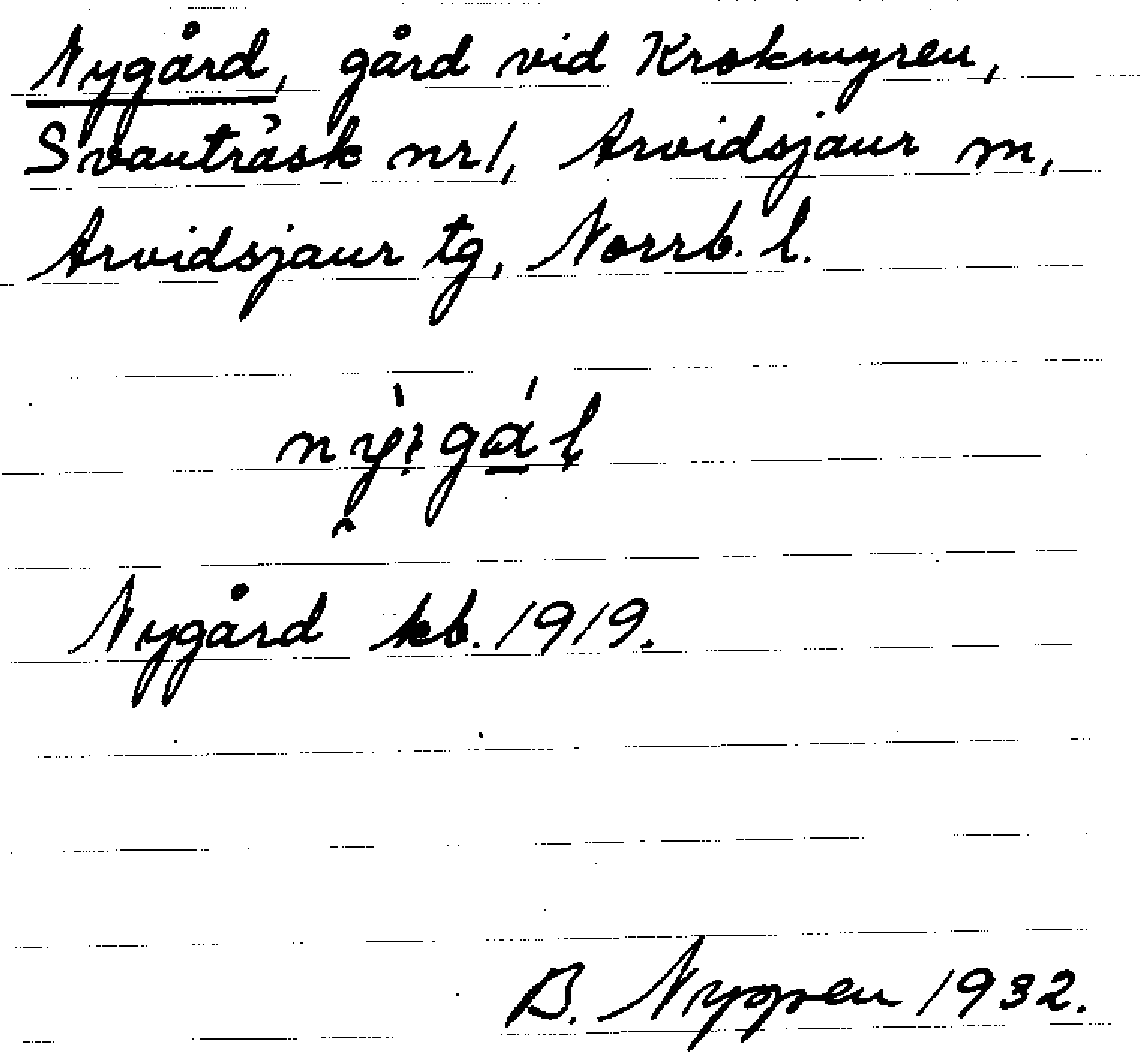 Nygård, gård vid Krokmyren,
Svanträsk nr 1, Arvidsjaur m,
Arvidsjaur tg, Norrb. l.
Nygård kb. 1919.
B. Nygren 1932.